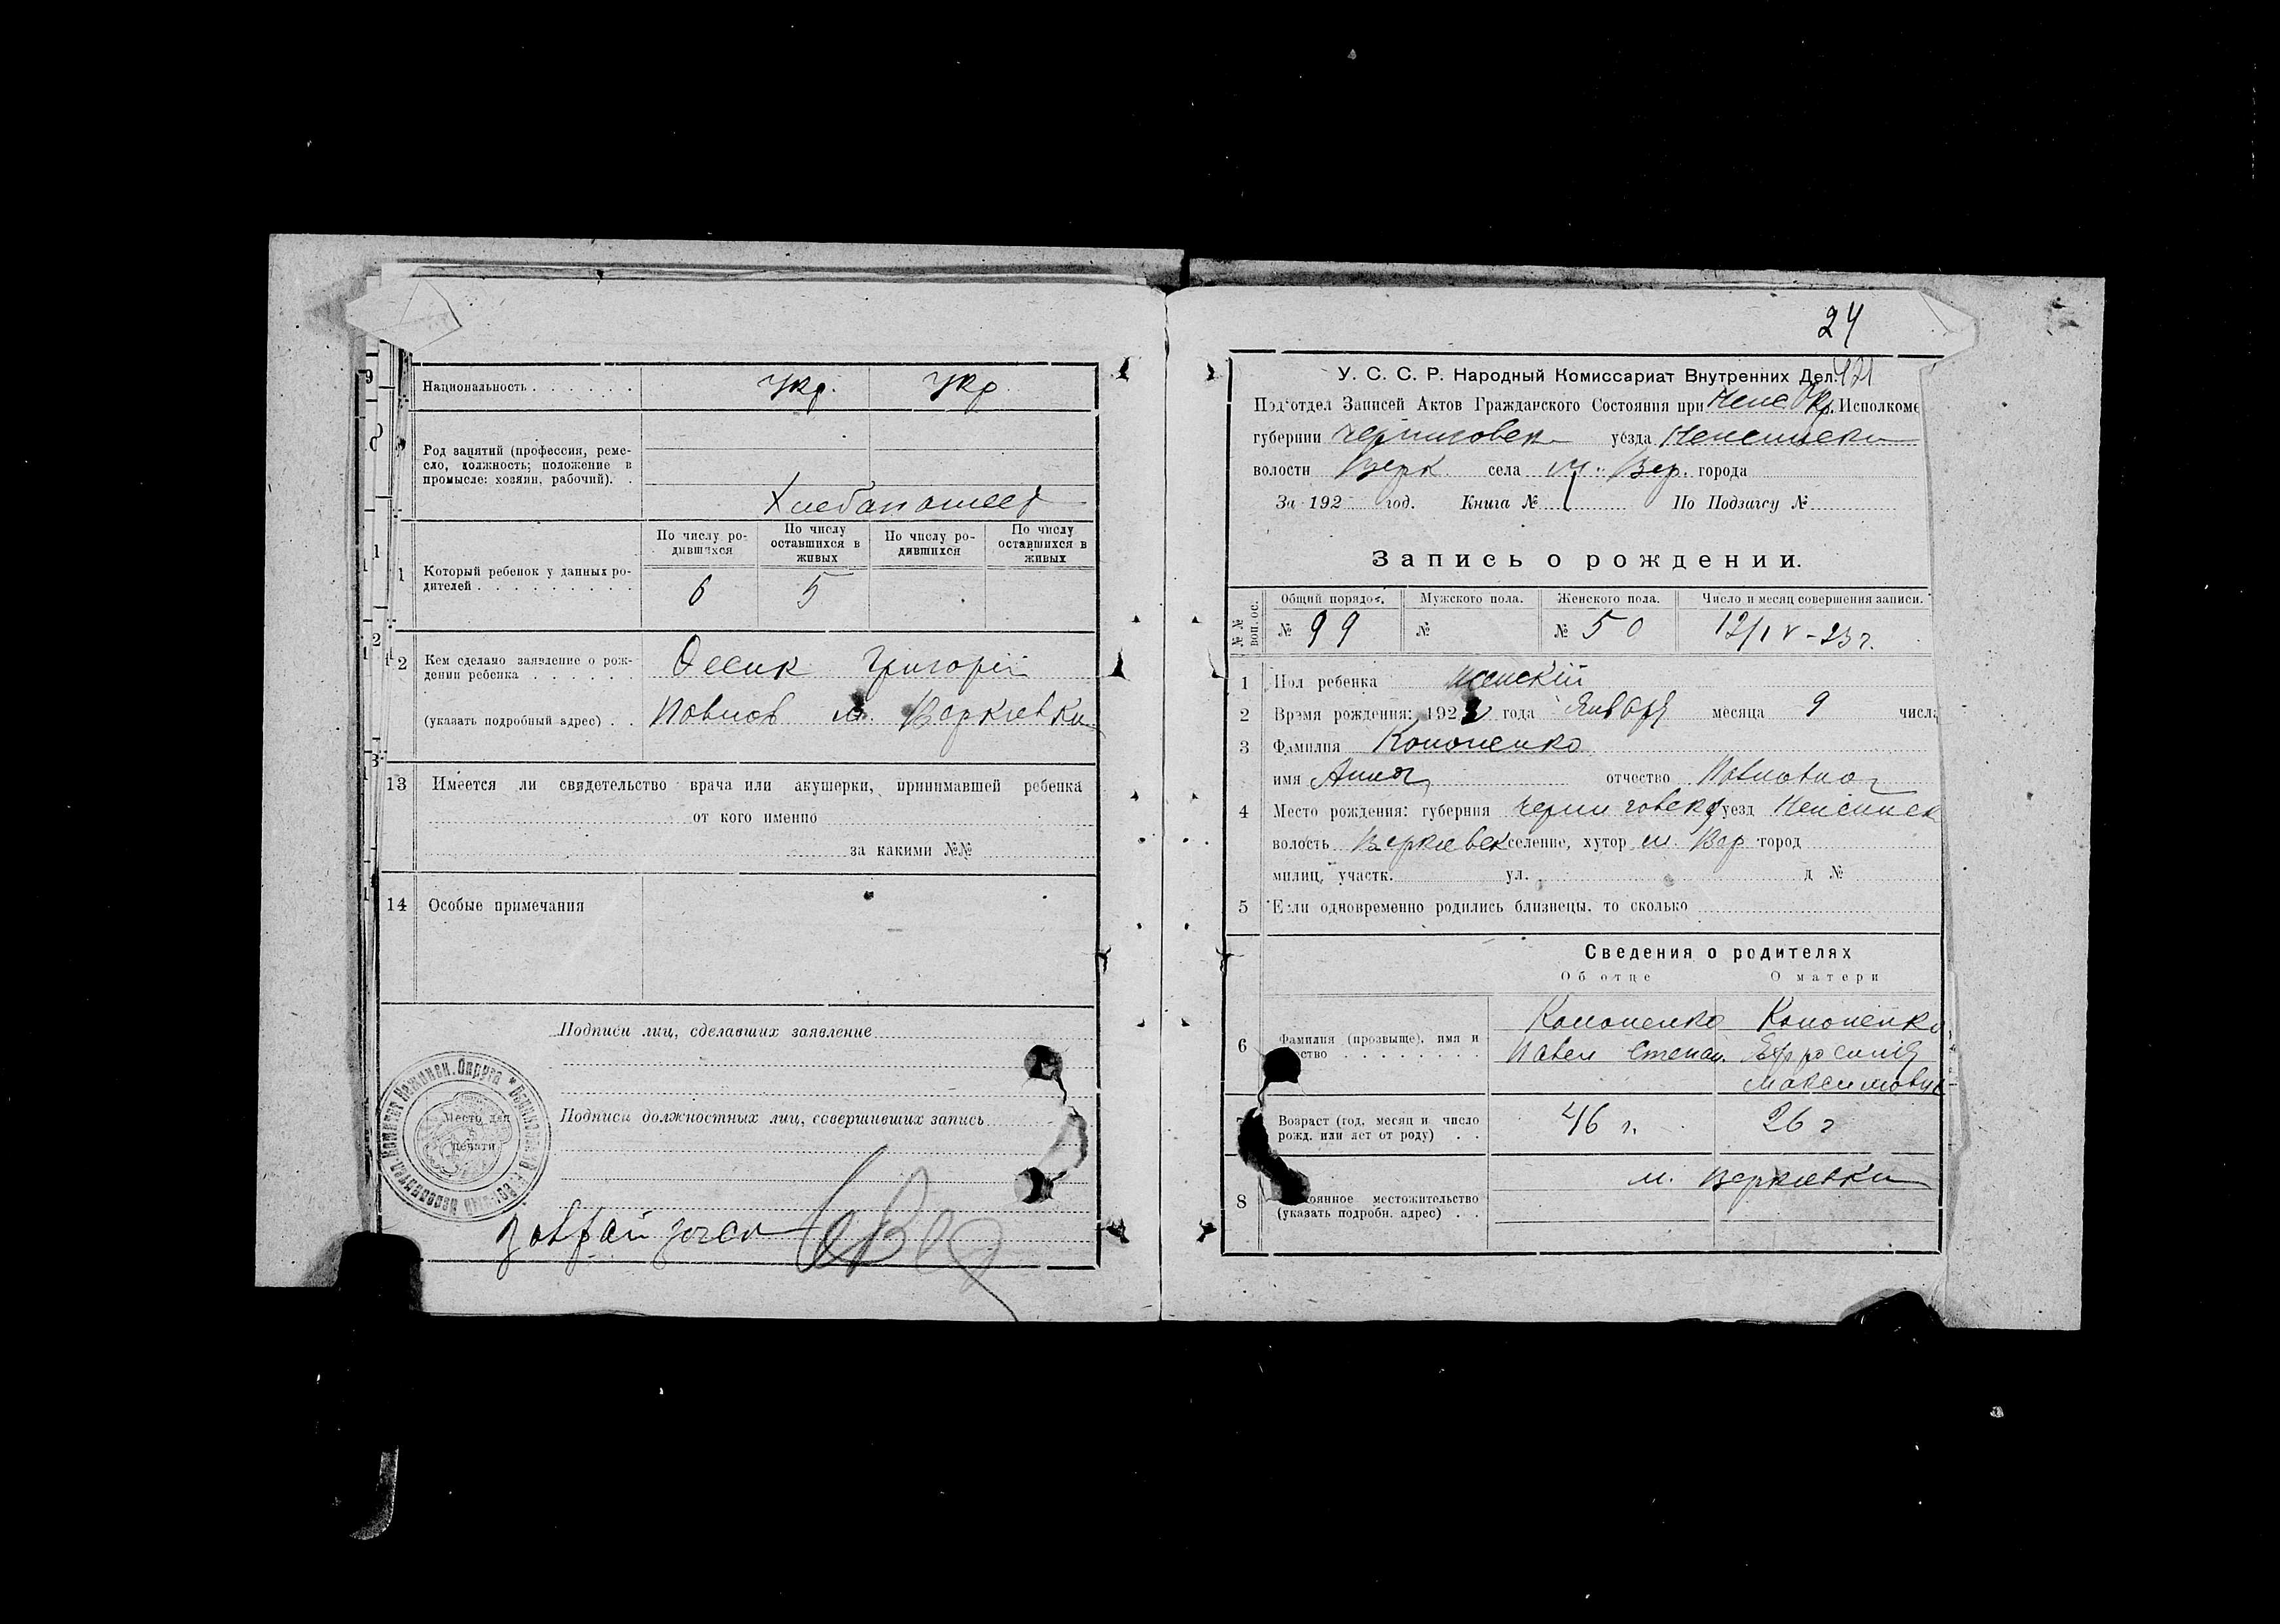 Национальность . . . . . . . укр. укр
Род занятий (профессия, реме-
сло, должность; положение в
промысле: хозяин, рабочий). .
Хлебапашест
По числу ро-
дившихся
По числу
оставшихся в
живых
По числу ро-
дившихся
По числу
оставшихся в
живых
1 Который ребенок у данных ро-
дителей . . . . . . . . . 6 5
2 Кем сделано заявление о рож-
дении ребенка . . . . . . Григорій
(указать подробный адрес) . . Повлов м. Веркіевки
13 Имеется ли свидетельство врача или акушерки, принимавшей ребенка
от кого именно
за какими №№
14 Особые примечания
Подписи лиц, сделавших заявление
Подписи должностных лиц, совершивших запись
Место для
печати
24
У. С. С. Р. Народный Комиссариат Внутренних Дел.
Под'отдел Записей Актов Гражданского Состояния при Неж. Окр. Исполкоме
губернии Черниговск уезда Неженски
волости Верк села м. Вер. города
За 192 год. Книга № 1 По Подзагсу №
Запись о рождении.
№ № воп.ос.
Общий порядок. Мужского пола. Женского пола. Число и месяц совершения записи.
№ 99 № № 50 12/IV - 23 г.
1 Пол ребенка женскій
2 Время рождения: 1923 года Января месяца 9 числа
3 Фамилия Кононенко
имя Анна отчество Повловна
4 Место рождения: губерния Черниговска уезд Неженск
волость Веркіевск селение, хутор м. Вер город
милиц. участк. ул. д №
5 Если одновременно родились близнецы, то сколько
Сведения о родителях
Об отце О матери
6 Фамилия (прозвище), имя и
ество . . . . . . . .
Кононенко Кононенко
Павел Степан. Ефросинія
Максимовна
Возраст (год, месяц и число
рожд. или лет от роду) . . 46 г. 26 г
8 оянное местожительство
(указать подробн. адрес) . . м. Веркіевки